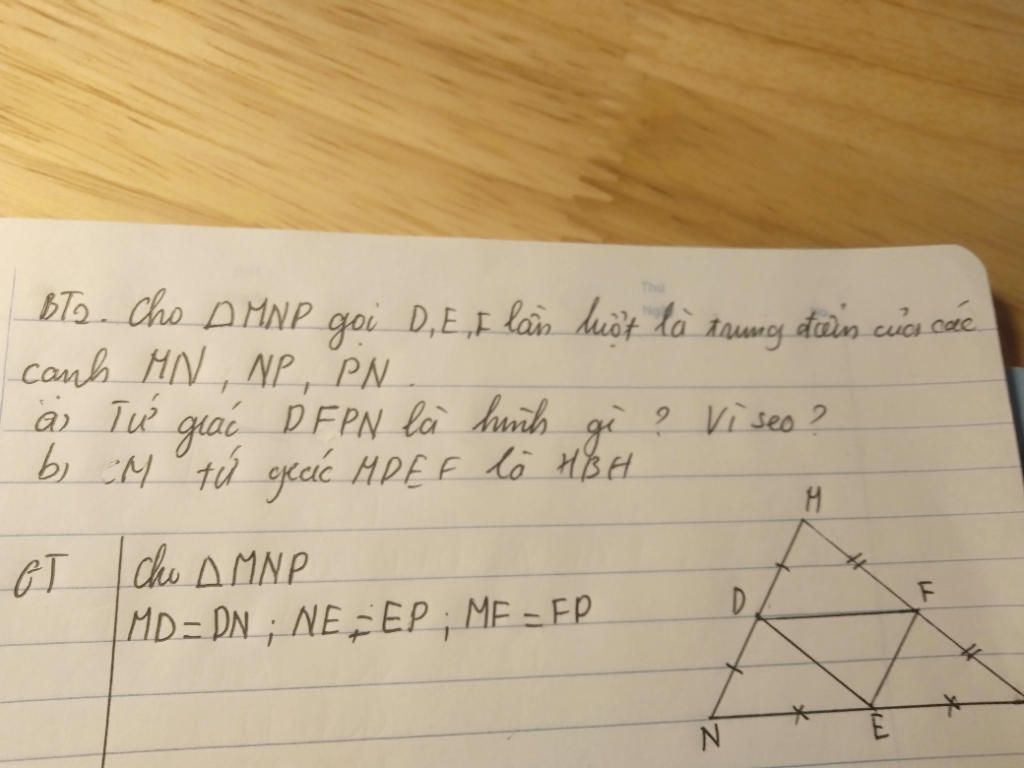 BT2. Cho ΔMNP gọi D, E, F lần lượt là trung điểm của các
cạnh MN, NP, PN.
a) Tứ giác DFPN là hình gì? Vì sao?
b) CM tứ giác MDEF là HBH
GT
Cho ΔMNP
MD = DN; NE = EP; MF = FP
M
D
F
N
E